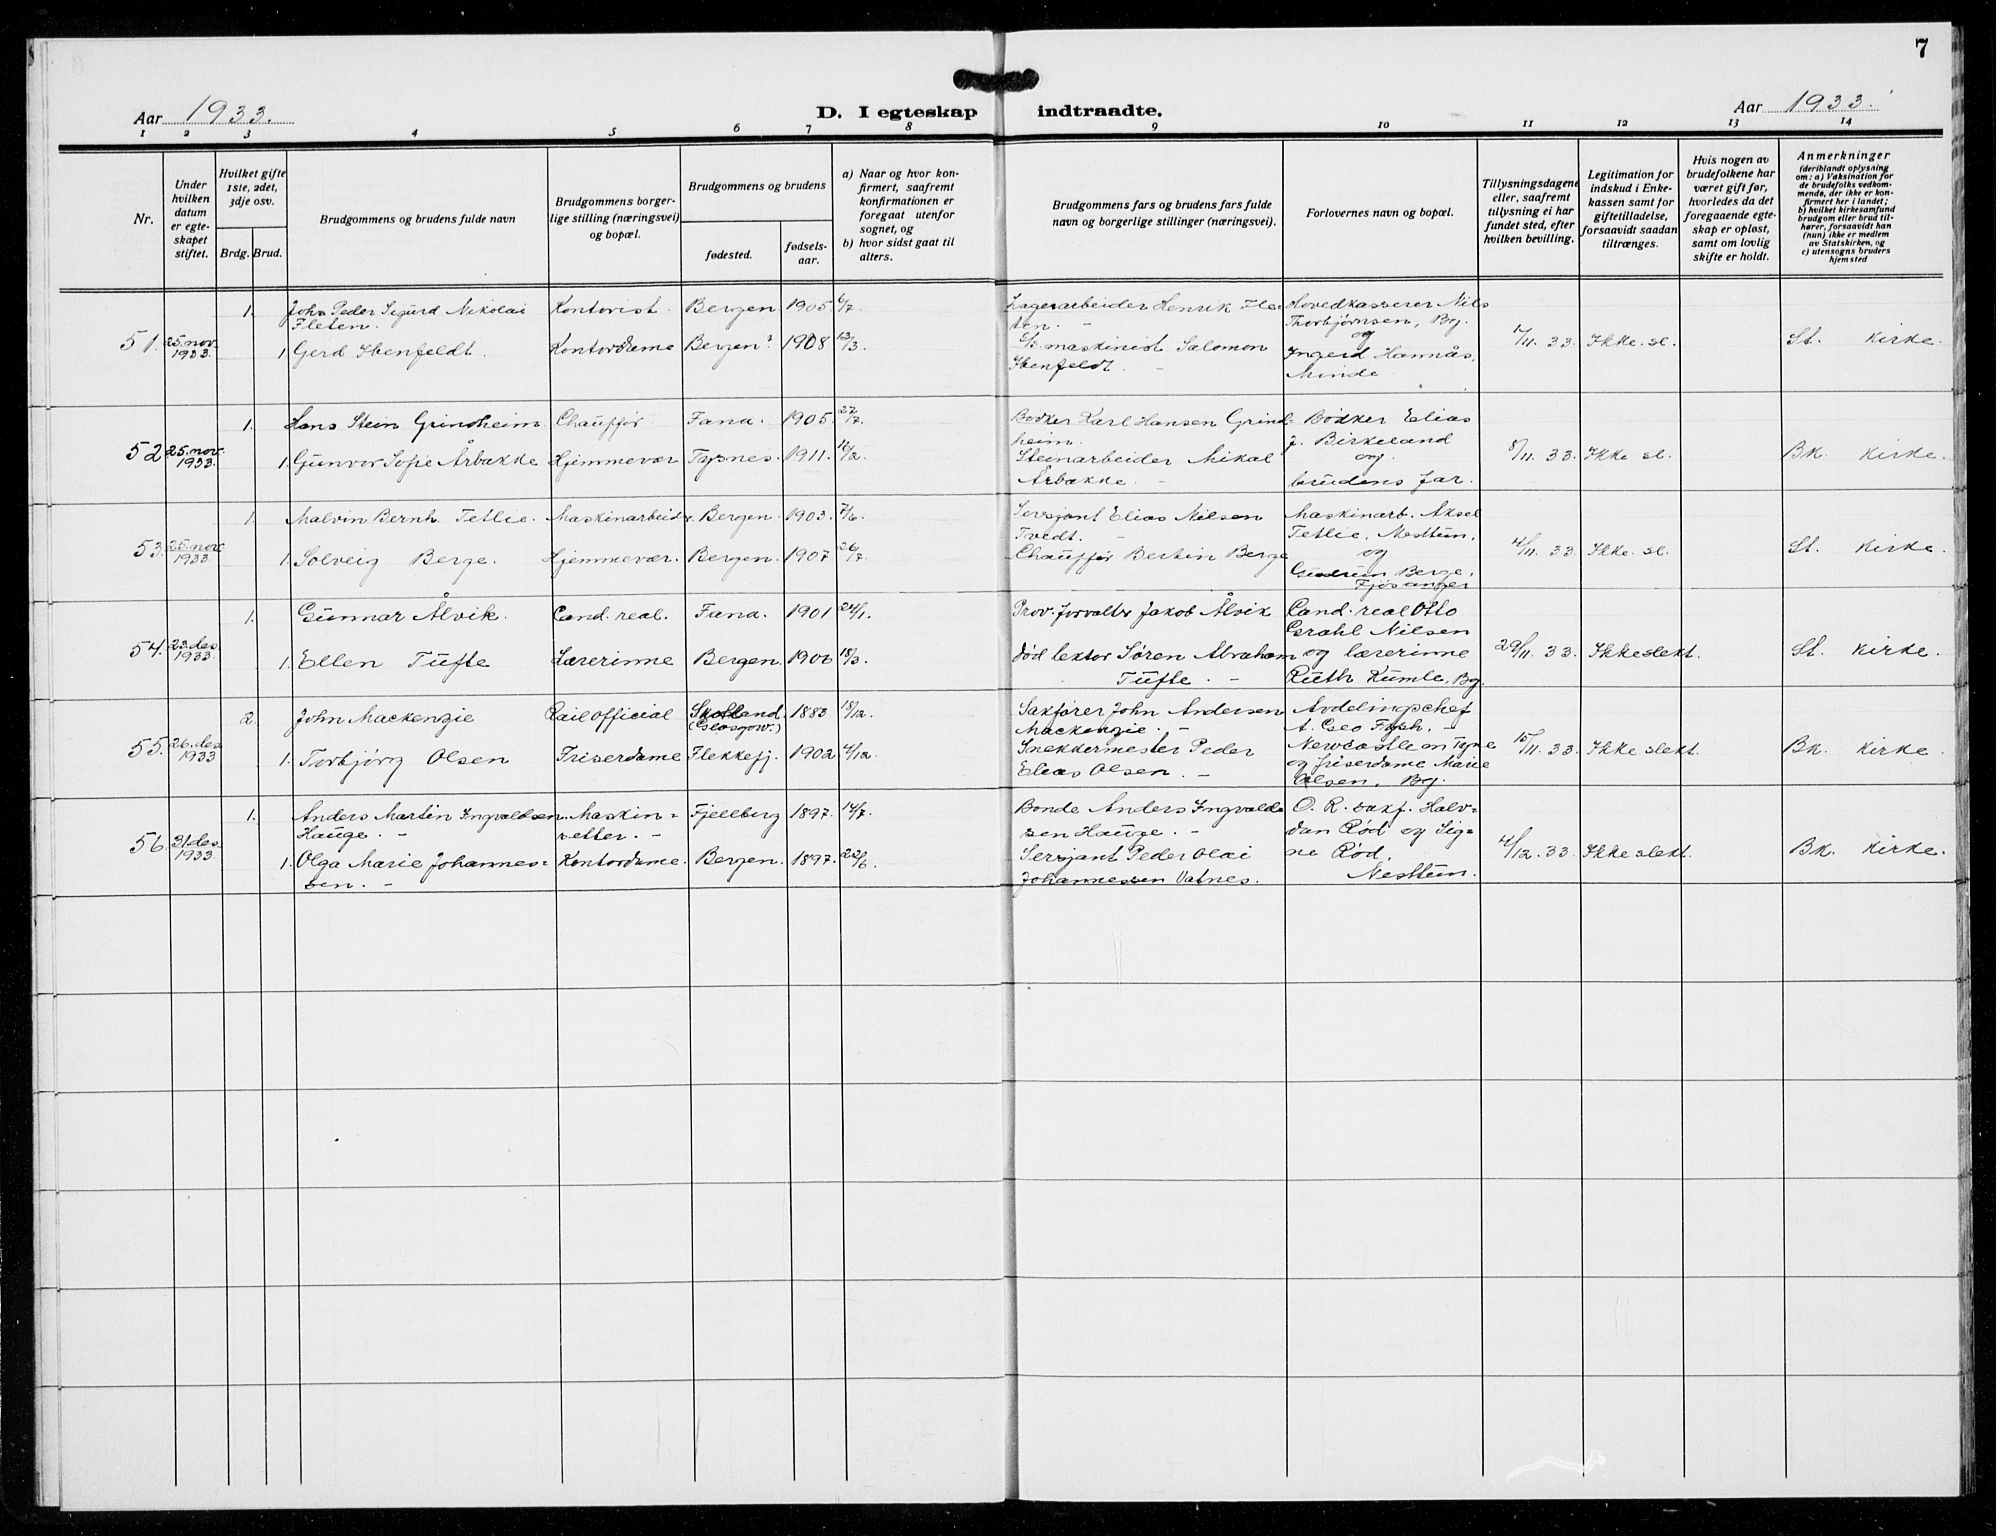 7
Aar 1933.
D. I egteskap indtraadte.
Aar 1933.
1 2 3 4 5 6 7 8 9 10 11 12 13 14
Nr.
Under hvilken datum er egteskapet stiftet.
Hvilket gifte 1ste, 2det, 3dje osv.
Brdg. Brud.
Brudgommens og brudens fulde navn
Brudgommens borgerlige stilling (næringsvei) og bopæl.
Brudgommens og brudens
fødested.
fødselsaar.
a) Naar og hvor konfirmert, saafremt konfirmationen er foregaat utenfor sognet, og
b) hvor sidst gaat til alters.
Brudgommens fars og brudens fars fulde navn og borgerlige stillinger (næringsvei).
Forlovernes navn og bopæl.
Tillysningsdagene eller, saafremt tillysning ei har fundet sted, efter hvilken bevilling.
Legitimation for indskud i Enkekassen samt for giftetilladelse, forsaavidt saadan tiltrænges.
Hvis nogen av brudefolkene har været gift før, hvorledes da det foregaaende egteskap er opløst, samt om lovlig skifte er holdt.
Anmerkninger
(deriblandt oplysning om: a) Vaksination for de brudefolks vedkommende, der ikke er konfirmert her i landet;
b) hvilket kirkesamfund brudgom eller brud tilhører, forsaavidt han (hun) ikke er medlem av Statskirken, og
c) utensogns bruders hjemsted
51. 25. nov. 1933.
1. Johs Peder Sigurd Nikolai Fleten. Kontorist. Bergen 1905 6/7.
1 Gerd Ibenfeldt. Kontordame Bergen 1908 13/3.
Lagerarbeider Henrik Fleten. -
S/s maskinist Salomon Ibenfeldt. -
Hovedkasserer Nils Thorbjørnsen, Bg. og Ingerd Hannås, Minde
17/11. 33. Ikke. sl. St. Kirke.
52 25. nov. 1933.
1. Hans Stein Grindheim Chauffør Fana. 1905. 27/7.
1. Gunvor Sofie Årbakke Hjemmevær Tysnes. 1911. 16/2.
Bødker Karl Hansen Grindheim.
Steinarbeider Mikal Årbakke. -
Bødker Elias J. Birkeland og brudens far.
8/11. 33. Ikke sl. Bk. Kirke.
53. 25. nov 1933
1. Malvin Bernh. Tetlie. Maskinarbeid. Bergen. 1903. 7/6.
1. Solveig Berge. Hjemmevær. Bergen. 1907 26/7.
Sersjant Elias Nilsen Tvedt. -
Chauffør Bertin Berge
Maskinarb. Aksel Tetlie, Nesttun, og Gudrun Berge, Fjøsanger
4/11. 33. Ikke. sl. St. Kirke.
54. 23. des 1933.
1. Gunnar Ålvik. Cand. real. Fana. 1901 24/1.
1. Ellen Tufte Lærerinne Bergen. 1906 18/3.
Prov. forvalter Jakob Ålvik
død lektor Søren Abraham Tufte. -
Cand. real Otto Grahl Nilsen og lærerinne Ruth Kumle, Bg.
29/11. 33. Ikke slekt. St. Kirke.
55. 26. des 1933
2. John Mackenzie Rail official Skotland (Glasgow.) 1883 18/12.
1. Torbjørg Olsen Friserdame Flekkefj. 1902 4/12.
Sakfører John Andersen Mackenzie. -
Snekkermester Peder Elias Olsen. -
Avdelingschef A. Geo Fysh, - Newcastle on Tyne og friserdame Marie Olsen, Bg.
15/11. 33. Ikke slekt. Bk. Kirke
56. 31. des 1933.
1. Anders Martin Ingvaldsen Hauge. - Maskinsetter. - Fjellberg 1897. 14/7.
1. Olga Marie Johannessen. - Kontordame. Bergen. 1897. 22/6.
Bonde Anders Ingvaldsen Hauge. -
Sersjant Peder Olai Johannessen Vatnes.
O. R. sakf. Halvdan Rød og Signe Rød, Nesttun.
4/12. 33. Ikke slekt. Bk. Kirke.